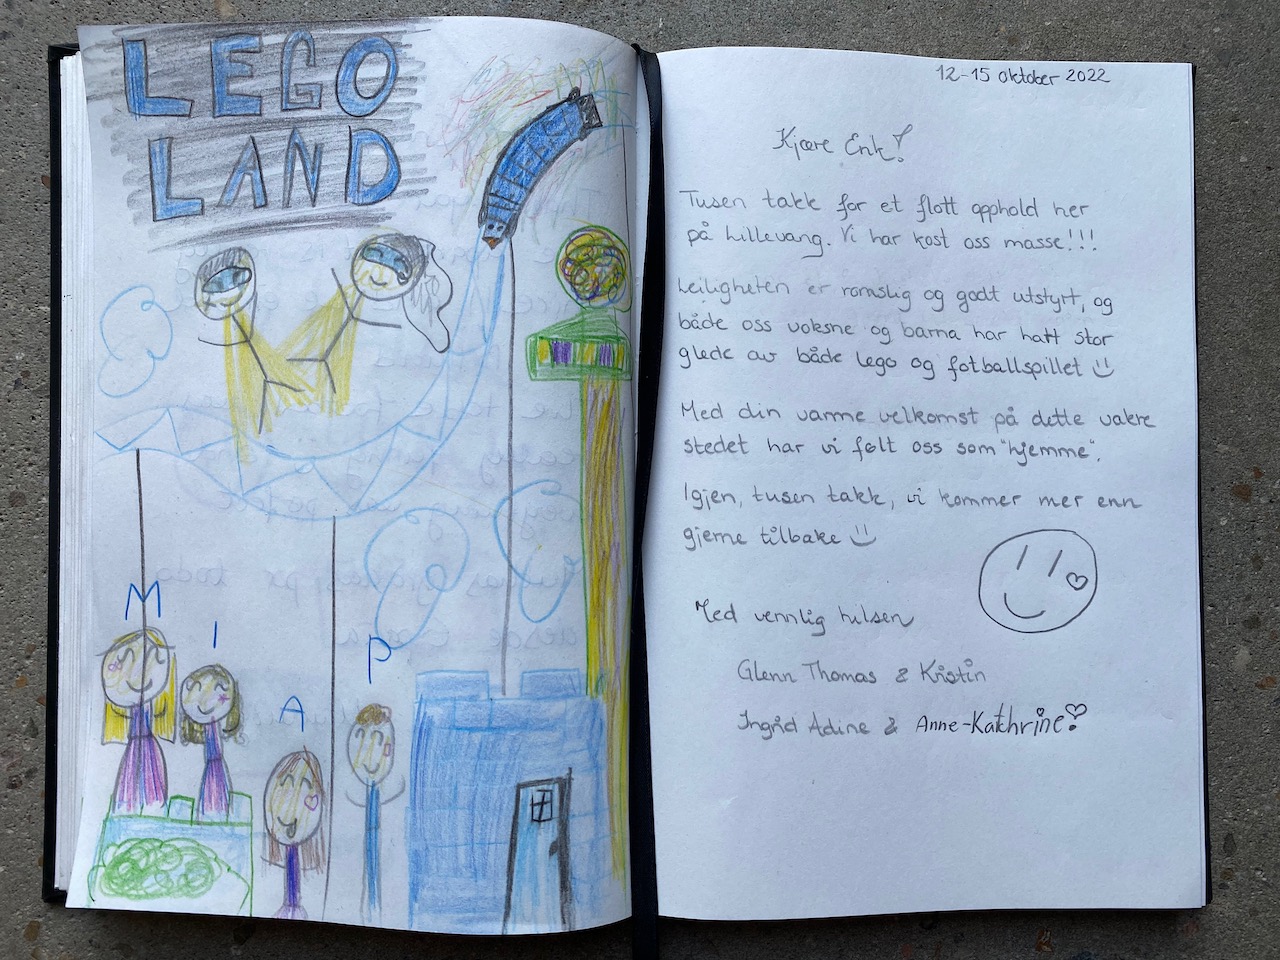 LEGO
LAND
M
I
A
P
12-15 oktober 2022
Kjære Erik!
Tusen takk for et flott opphold her
på Lillevang. Vi har kost oss masse!!!
Leiligheten er romslig og godt utstyrt, og
både oss voksne og barna har hatt stor
glede av både lego og fotballspillet
Med din varme velkomst på dette vakre
stedet har vi følt oss som "hjemme".
Igjen, tusen takk, vi kommer mer enn
gjerne tilbake
Med vennlig hilsen
Glenn Thomas & Kristin
Ingrid Adine & Anne-Kathrine